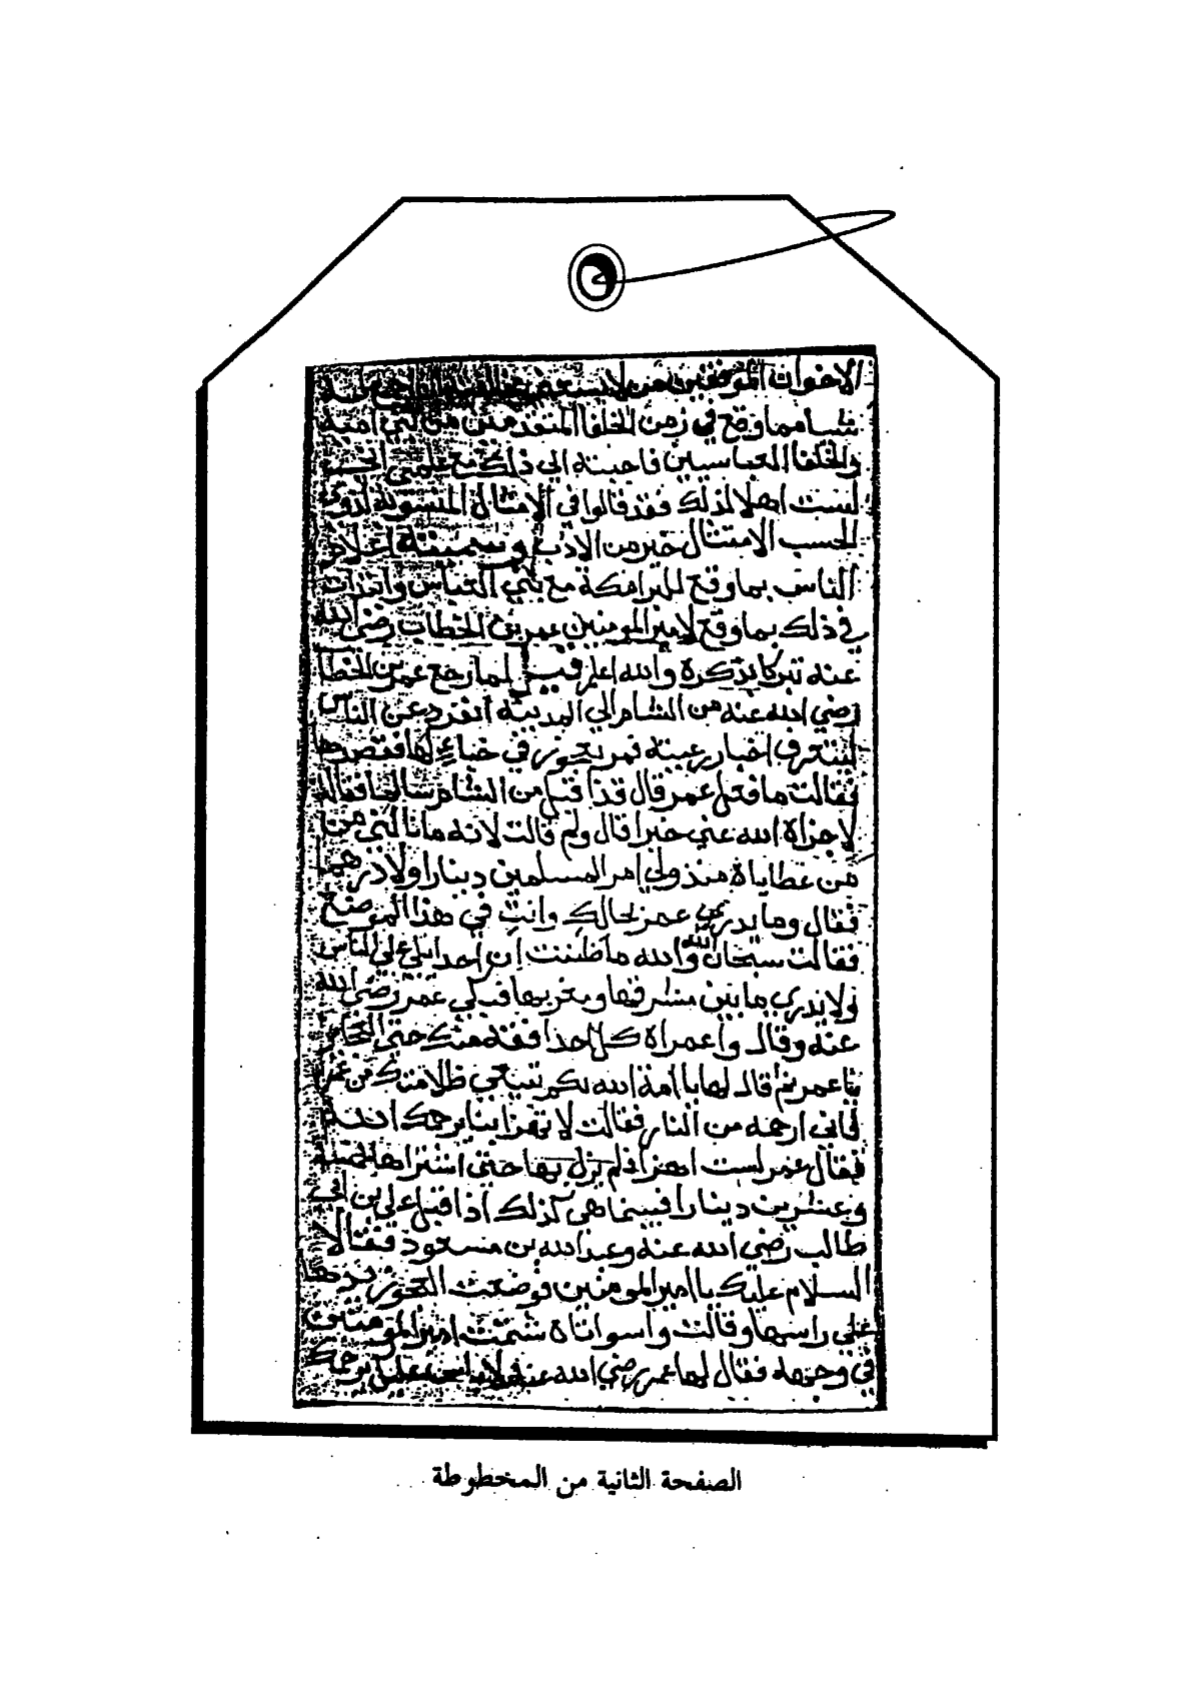 الاخوان الموفقين من لا يسعني مخالفته ان اجمع له
شيا مما وقع في زمن الخلفا المتقدمين من بني امية
والخلفا العباسيين فاجبته الي ذلك مع علمي اني
لست اهلا لذلك فقد قالوا في الامثال المنسوبة لذوي
الحسب الامتثال خير من الادب وسميته اعلام
الناس بما وقع للبرامكة مع بني العباس وابتدات
في ذلك بما وقع لامير المومنين عمر بن الخطاب رضي الله
عنه تبركا بذكره والله اعلم قيل لما رجع عمر بن الخطا
رضي الله عنه من الشام الي المدينة انفرد عن الناس
ليتعرف اخبار رعيته فمر بعجوز في خباء لها فقصدها
فقالت ما فعل عمر قال قد اقبل من الشام سالما فقالت
لا جزاه الله عني خيرا قال ولم قالت لانه ما نالني من
من عطاياه منذ ولي امر المسلمين دينارا ولا درهما
فقال وما يدري عمر بحالك وانت في هذا الموضع
فقالت سبحان الله والله ما ظننت ان احدا يلي علي الناس
ولا يدري ما بين مشرقها ومغربها فبكي عمر رضي الله
عنه وقال واعمراه كل احد افقه منك حتي العجائز
يا عمر ثم قال لها يا امة الله بكم تبيعي ظلامتك من عمر
فاني ارحمه من النار فقالت لا تهزا بنا يرحمك الله
فقال عمر لست اهزا فلم يزل بها حتي اشتراها بخمسة
وعشرين دينارا فبينما هي كذلك اذ اقبل علي بن ابي
طالب رضي الله عنه وعبد الله بن مسعود فقالا
السلام عليك يا امير المومنين فوضعت العجوز يدها
علي راسها وقالت واسواتاه شتمت امير المومنين
في وجهه فقال لها عمر رضي الله عنه لا باس عليك يرحمك
الصفحة الثانية من المخطوطة